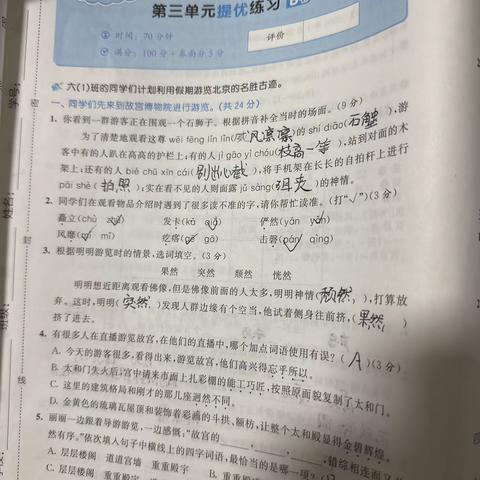 第三单元提优练习
时间：70分钟
满分：100分＋卷面分5分
评价
六(1)班的同学们计划利用假期游览北京的名胜古迹。
一、同学们先来到故宫博物院进行游览。(共24分)
1. 你看到一群游客正在围观一个石狮子。根据拼音补全当时的场面。(9分)
为了清楚地观看这尊 wēi fēng lǐn lǐn(威风凛凛)的 shí diāo(石雕),游
客中有的人趴在高高的护栏上;有的人 jì gāo yì chóu(技高一筹),站到对面的木
架上;还有的人 bié chū xīn cái(别出心裁),将手机架在长长的自拍杆上进行
pāi shè(拍照);实在看不见的人则面露 jǔ sàng(沮丧)的神情。
2. 同学们在观看物品介绍时遇到了很多读不准的字,请你帮忙读准。(打"√")(3分)
矗立(chù zhú) 发卡(kǎ qiǎ) 俨然(yǎn yán)
风靡(mǐ mí) 疙瘩(gē gā) 击磬(pán qìng)
3. 根据明明游览时的情景,选词填空。(3分)
果然 突然 颓然 恍然
明明想近距离观看佛像,但是佛像前面的人太多,明明神情(颓然),打算放
弃。这时,明明(突然)发现人群边缘有个空当,他试着侧身往前挤,(果然)
挤了进去。
4. 有很多人在直播游览故宫,在他们的直播中,哪个加点词语使用有误?(A)(3分)
A. 今天的游客很多,看得出来,游览故宫,他们高兴得忘乎所以。
B. 太和门失火后,宫中请来市面上扎彩棚的能工巧匠,按照原面貌复制了太和门。
C. 这里的建筑格局和刚才的那几座迥然不同。
D. 金黄色的琉璃瓦屋顶和装饰着彩画的斗拱、额枋,让整个太和殿显得金碧辉煌。
5. 丽丽一边跟着导游游览,一边感慨:"故宫的______、______,错综相连而又
然有序。"依次填入句子中横线上的四字词语,最恰当的是哪一项?
A. 层层楼阁 道道宫墙 重重殿宇 B. 重重
C. 层层楼阁 重重殿宇